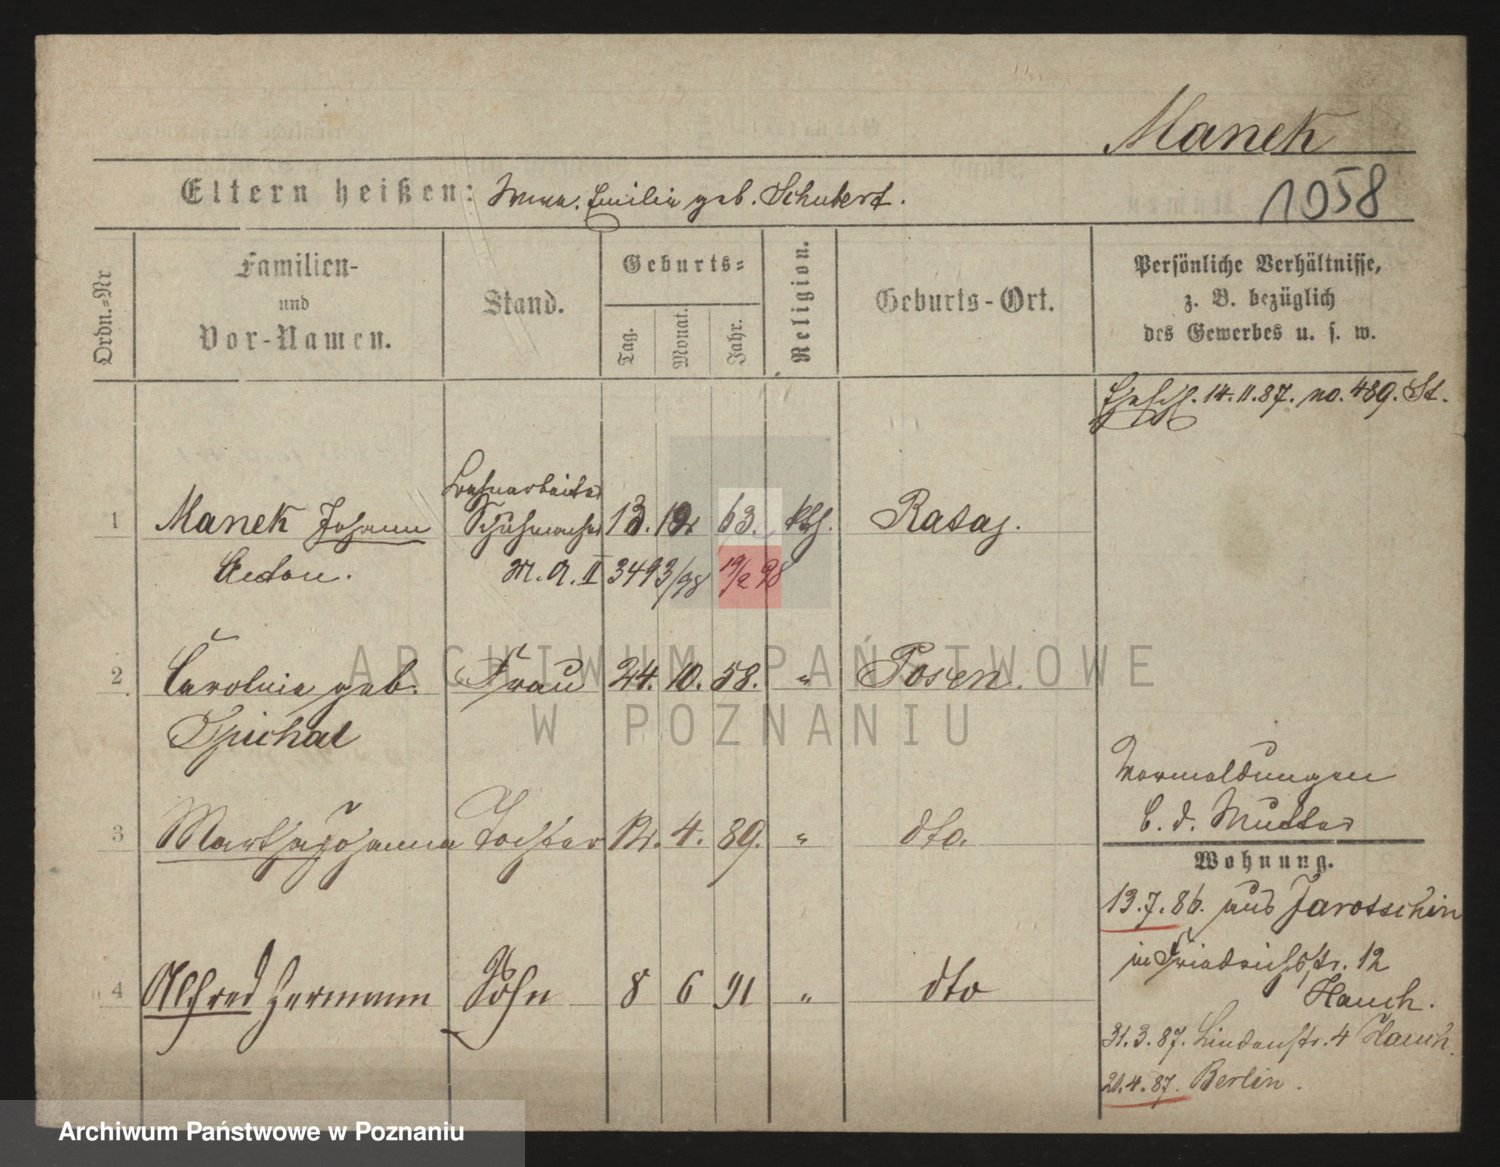 Manek
Eltern heißen: Wwe. Emilia geb. Schubert.
1058
Ordn.=Nr
Familien-
und
Vor-Namen.
Stand.
Geburts=
Tag.
Monat.
Jahr.
Religion.
Geburts-Ort.
Persönliche Verhältnisse,
z. B. bezüglich
des Gewerbes u. s. w.
Eheschl. 14.11.87. no. 489. St.
Schuhmacher
1 Manek Johann 13. 63. kth. Rataj.
Anton. M. A. II 3493/98 19/2 98
2 Carolina geb. Frau 24. 10. 58. " Posen.
Spichal
3 Martha Johanna Tochter 12. 4. 89. " dto.
4 Alfred Hermann Sohn 8 6 91 " dto
Vormeldungen
b. d. Mutter
Wohnung.
13.7.86. aus Jarotschin
in Friedrichstr. 12
Hauch.
31.3.87. Lindenstr. 4 Hauch.
20.4.87. Berlin.
ARCHIWUM PAŃSTWOWE
W POZNANIU
Archiwum Państwowe w Poznaniu